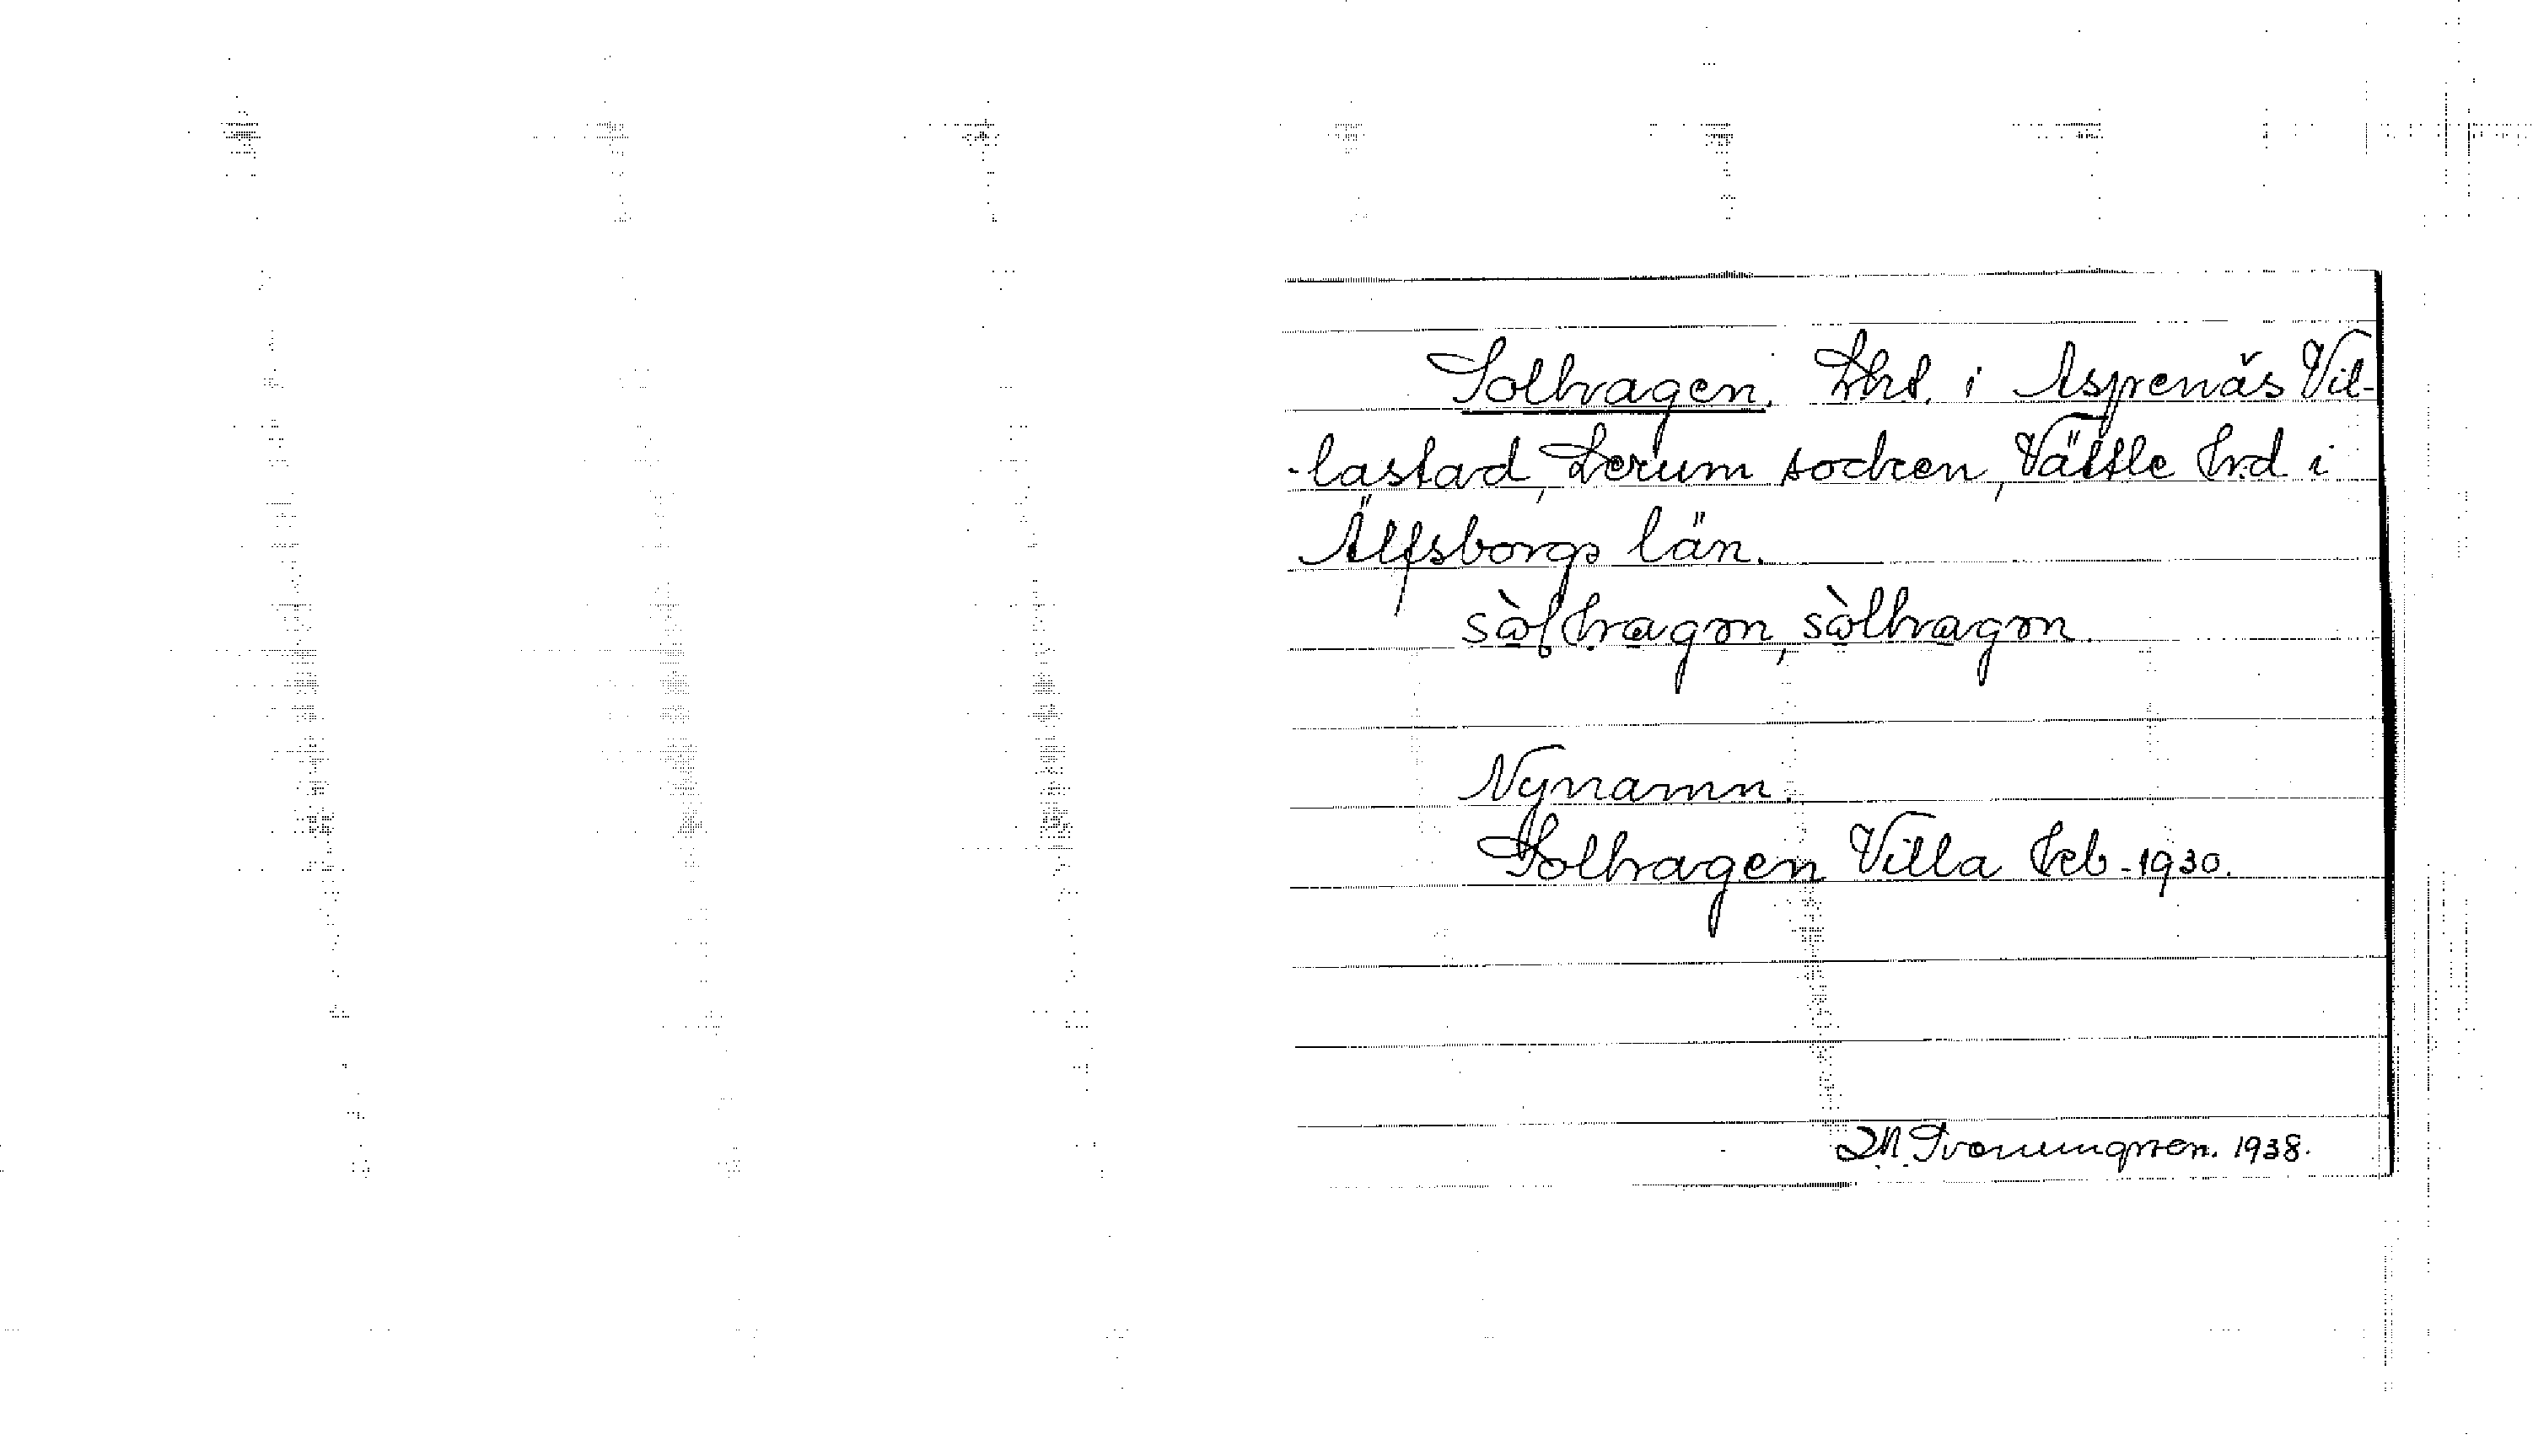 Solhagen. Lht. i Aspenäs Vil-
-lastad, Lerum socken, Vättle hd i
Älfsborgs län.
sὼlhagən, sὼlhagən.
Nynamn.
Solhagen Villa Feb -1930.
1938.